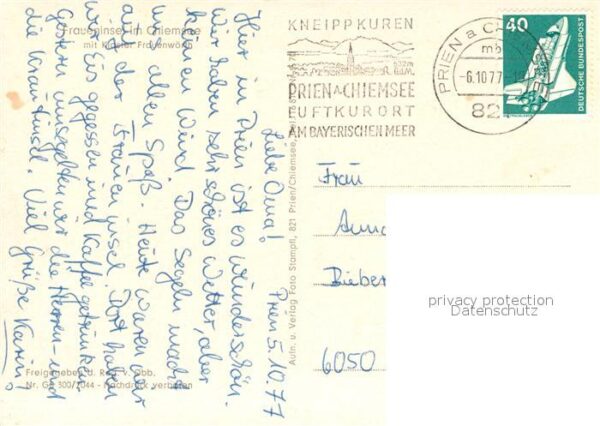 Fraueninsel im Chiemsee
mit Kloster Frauenwörth
Prien 5.10.77
Liebe Oma!
Hier in Prien ist es wunderschön.
Wir haben sehr schönes Wetter, aber
keinen Wind. Das Segeln macht
uns allen Spaß. Heute waren wir
auf der Fraueninsel. Dort haben
wir Eis gegessen und Kaffee getrunken.
Gestern umsegelten wir die Herren- und
die Krautinsel. Viel
Grüße Karin!
Freigegeben d. Reg. v. Obb.
Nr. GS 300/7044 - Nachdruck verboten
Aufn. u. Verlag Foto Stampfl, 821 Prien/Chiemsee,
KNEIPPKUREN
PRIEN A CHIEMSEE
LUFTKURORT
AM BAYERISCHEN MEER
PRIEN a CH
mb
-6.10.77-
82
40
DEUTSCHE BUNDESPOST
Frau
Anna
Bieber
6050
privacy protection
Datenschutz